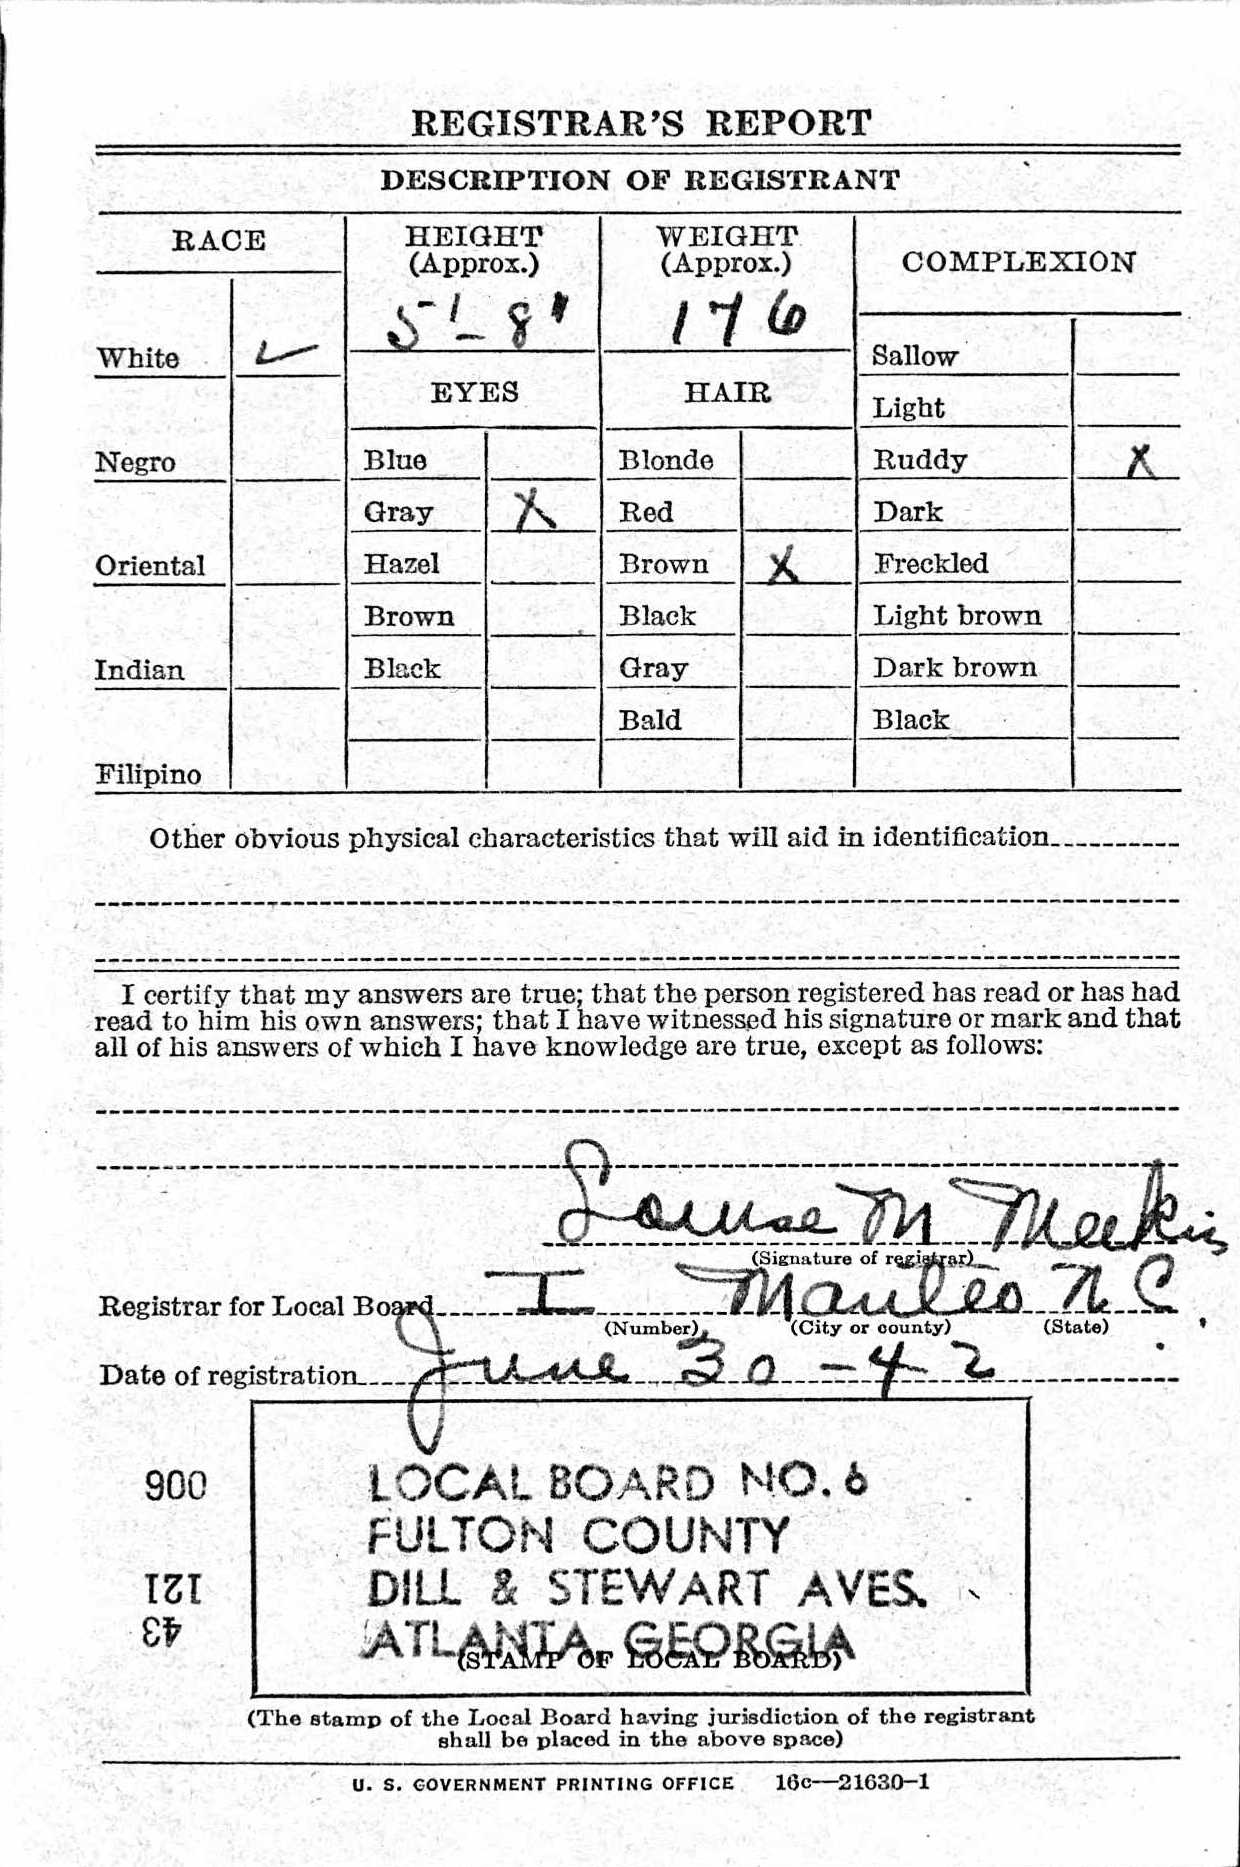 REGISTRAR'S REPORT
DESCRIPTION OF REGISTRANT
RACE
HEIGHT
(Approx.)
WEIGHT
(Approx.)
COMPLEXION
5'-8"
176
White ✓
Sallow
EYES
HAIR
Light
Negro
Blue
Blonde
Ruddy X
Gray X
Red
Dark
Oriental
Hazel
Brown X
Freckled
Brown
Black
Light brown
Indian
Black
Gray
Dark brown
Bald
Black
Filipino
Other obvious physical characteristics that will aid in identification
I certify that my answers are true; that the person registered has read or has had
read to him his own answers; that I have witnessed his signature or mark and that
all of his answers of which I have knowledge are true, except as follows:
Louise M Meekins
(Signature of registrar)
Registrar for Local Board I Manteo N C
(Number) (City or county) (State)
Date of registration June 30-42
LOCAL BOARD NO. 6
FULTON COUNTY
DILL & STEWART AVES.
ATLANTA, GEORGIA
(STAMP OF LOCAL BOARD)
900
121
43
(The stamp of the Local Board having jurisdiction of the registrant
shall be placed in the above space)
U. S. GOVERNMENT PRINTING OFFICE 16c—21630-1